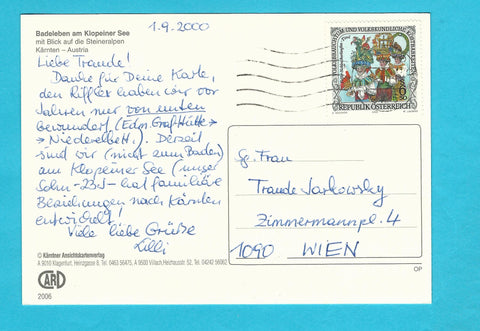 Badeleben am Klopeiner See
mit Blick auf die Steineralpen
Kärnten – Austria
1.9.2000
Liebe Traude!
Danke für Deine Karte,
den Riffler haben wir vor
Jahren nur von unten
bewundert (Edm. Graf-Hütte →
→ Niederelbeh.). Derzeit
sind wir (nicht zum Baden)
am Klopeiner See (unser
Sohn - 23J - hat familiäre
Beziehungen nach Kärnten
entwickelt!
Viele liebe Grüße
Lilli
REPUBLIK ÖSTERREICH
Frau
Traude Jarkowsky
Zimmermannpl. 4
1090 WIEN
© Kärntner Ansichtskartenverlag
A 9010 Klagenfurt, Heinzgasse 8, Tel. 0463 56475, A 9500 Villach, Heizhausstr. 52, Tel. 04242 56062
CARD
2006
OP